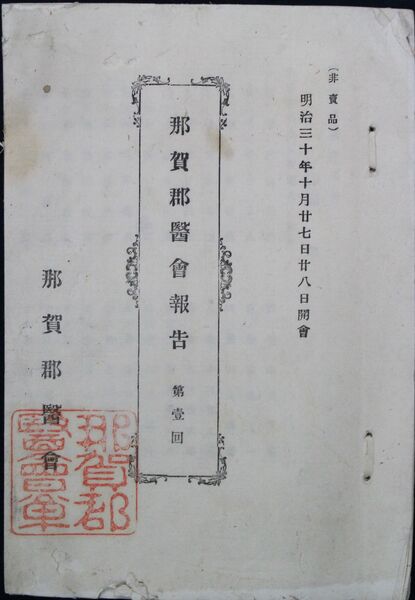 (非賣品)
明治三十年十月廿七日廿八日開會
那賀郡醫會報告 第壹回
那賀郡醫會
那賀郡
醫會章